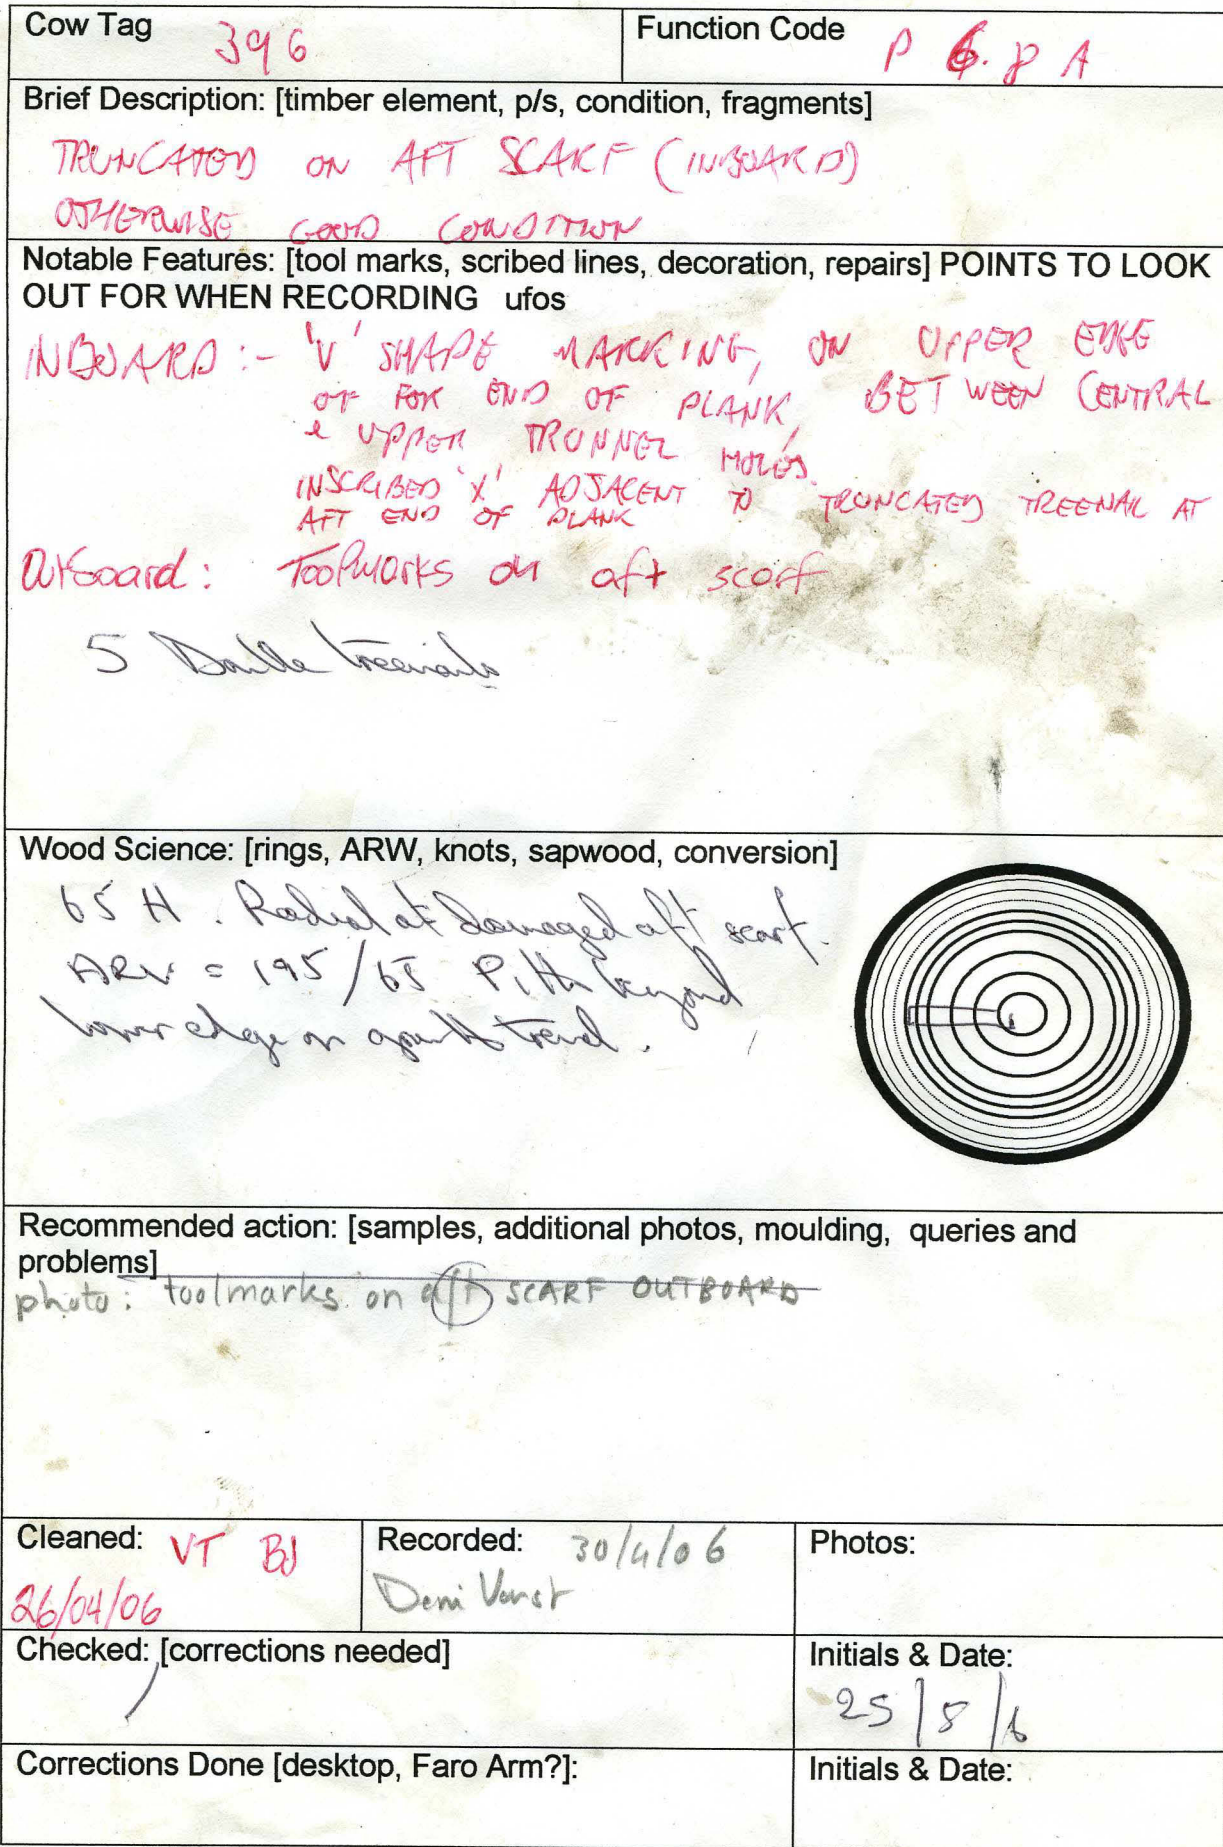 Cow Tag 396
Function Code P 6.8 A
Brief Description: [timber element, p/s, condition, fragments]
TRUNCATED ON AFT SCARF (INBOARD)
OTHERWISE GOOD CONDITION
Notable Features: [tool marks, scribed lines, decoration, repairs] POINTS TO LOOK
OUT FOR WHEN RECORDING ufos
INBOARD :- 'V' SHAPE MARKING, ON UPPER EDGE
OF FOR END OF PLANK, BETWEEN CENTRAL
& UPPER TRUNNEL HOLES.
INSCRIBED 'X' ADJACENT TO TRUNCATED TREENAIL AT
AFT END OF PLANK
Outboard: Toolmarks on aft scarf
5 Double treenails
Wood Science: [rings, ARW, knots, sapwood, conversion]
65 H. Radial at damaged aft scarf.
ARW = 195/65 Pith beyond
lower edge on trend.
Recommended action: [samples, additional photos, moulding, queries and
problems]
photo: toolmarks on aft SCARF OUTBOARD
Cleaned: VT BJ
26/04/06
Recorded: 30/4/06
Photos:
Checked: [corrections needed]
Initials & Date:
25/8/6
Corrections Done [desktop, Faro Arm?]:
Initials & Date: